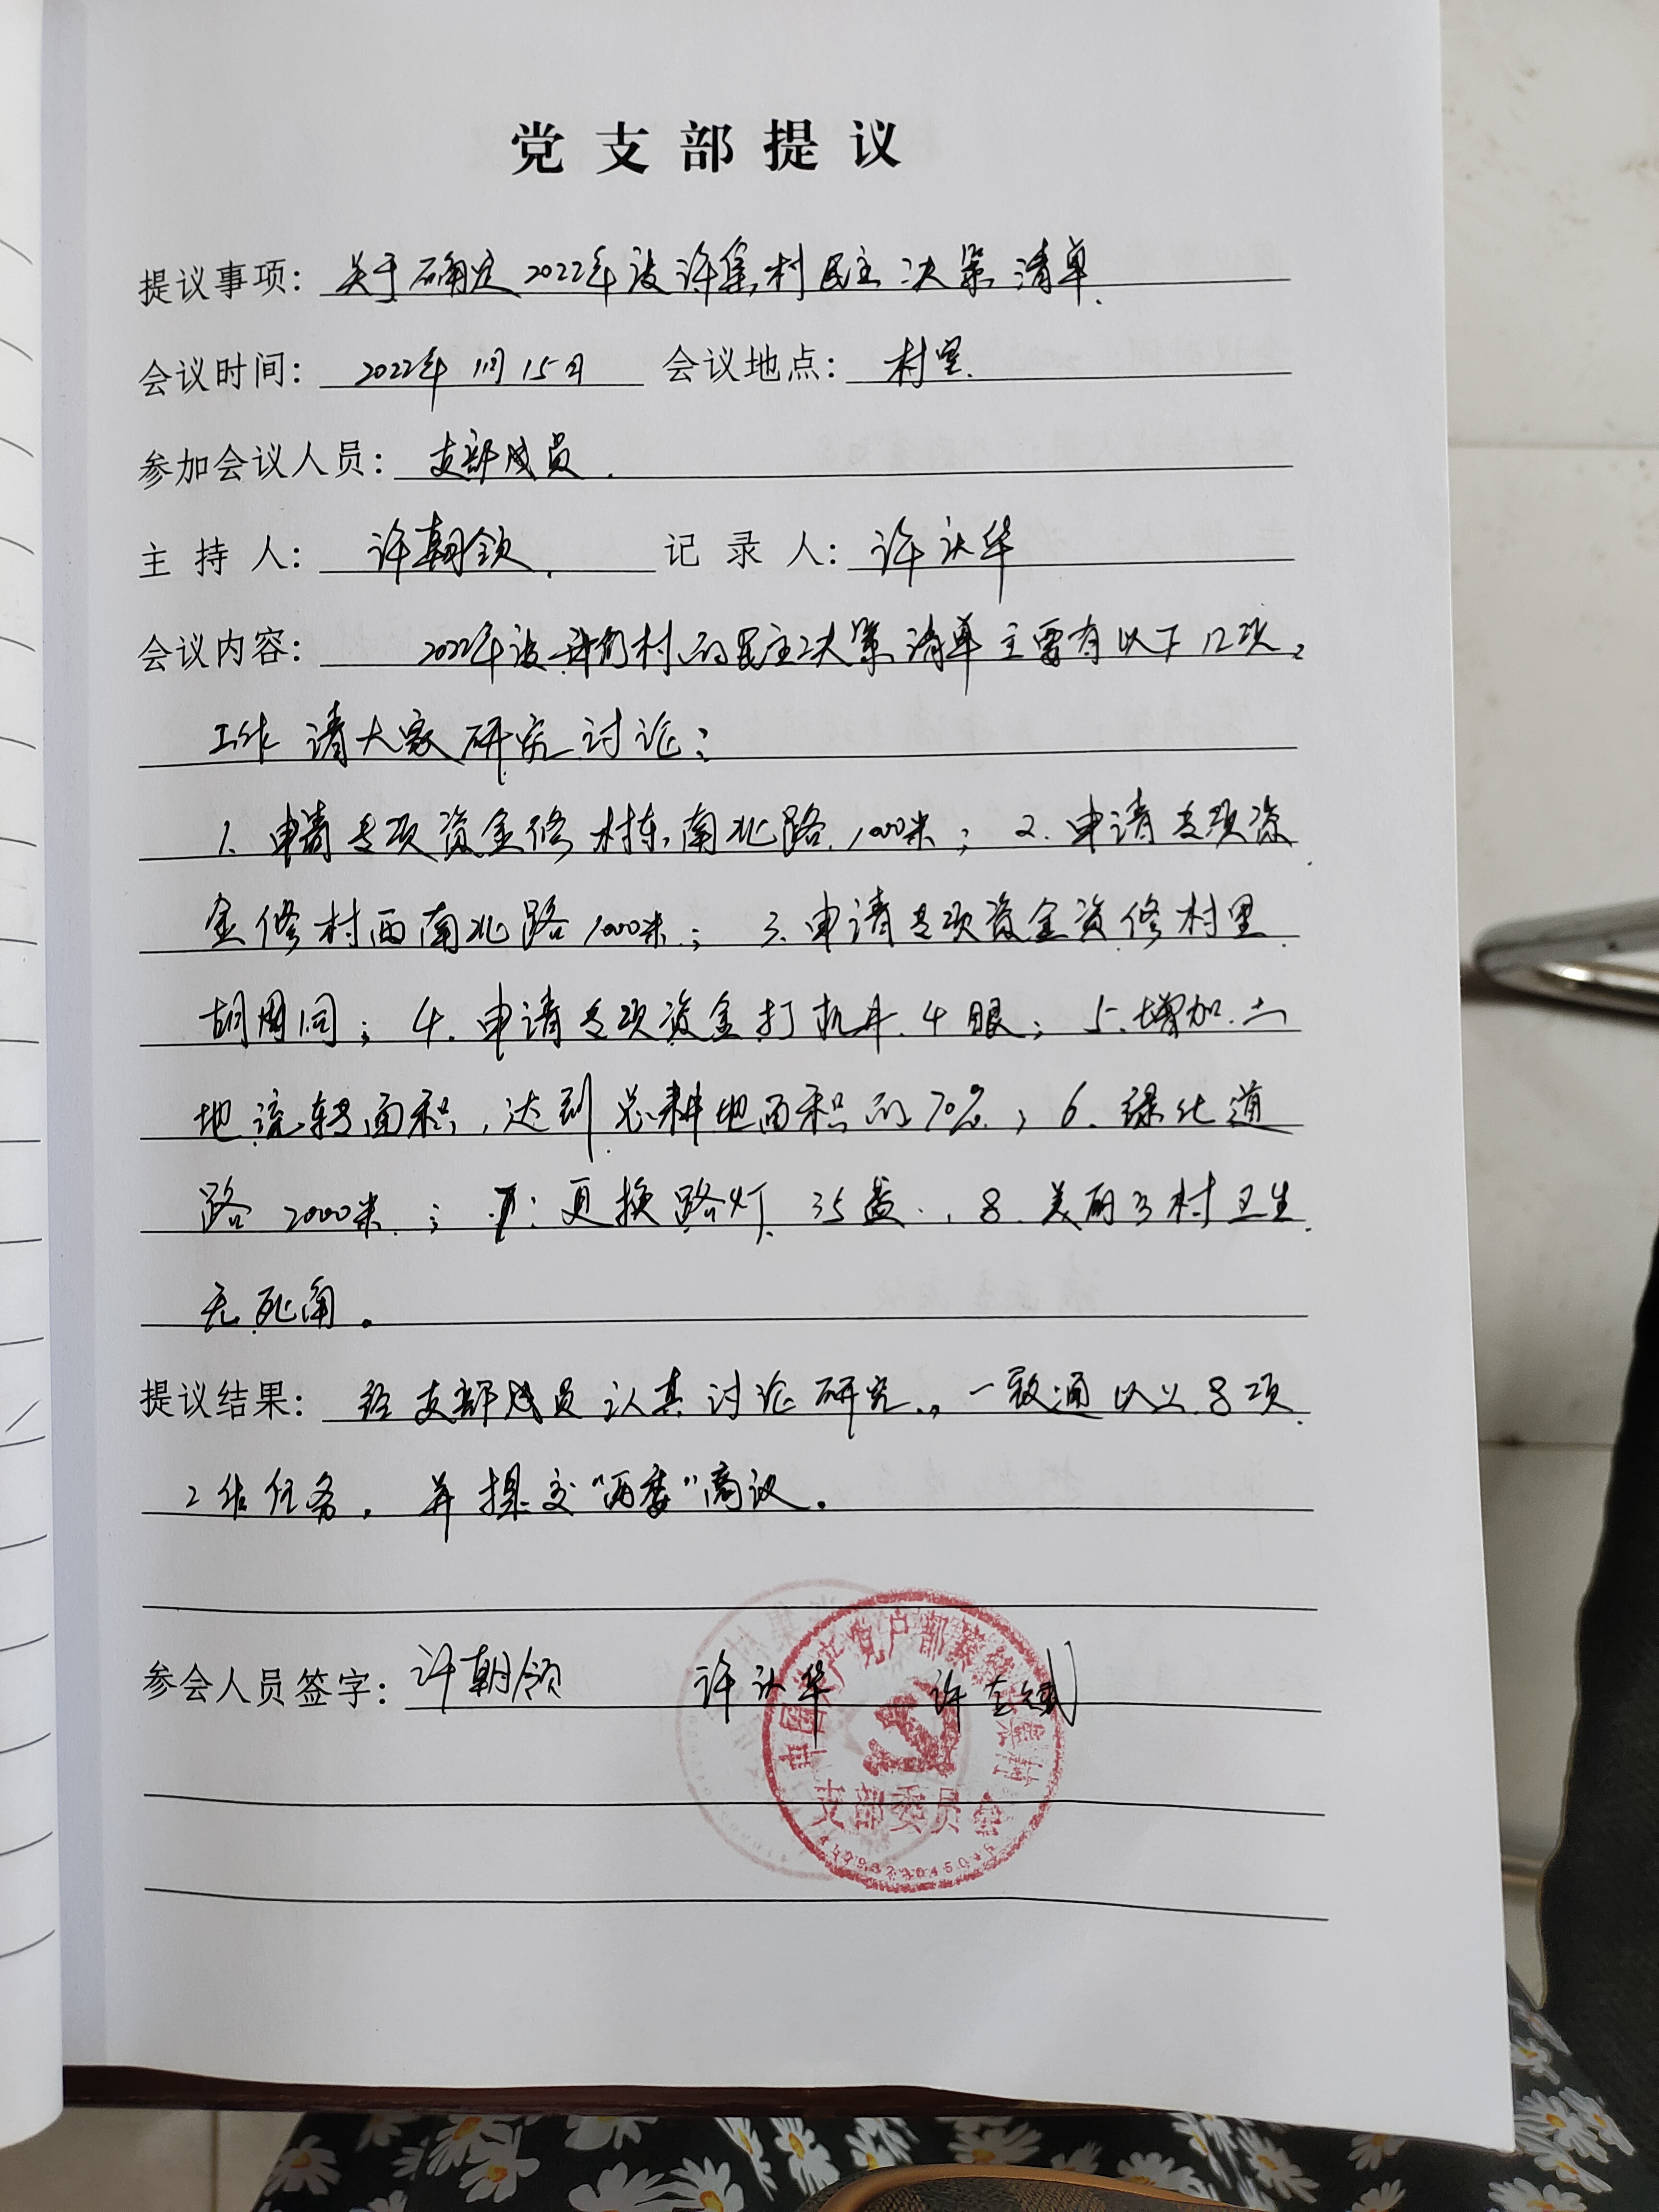 党支部提议
提议事项：关于确定2022年度许集村民主决策清单.
会议时间：2022年1月15日 会议地点：村室.
参加会议人员：支部成员.
主持人：许朝领. 记录人：许认华
会议内容：2022年度许村的民主决策清单主要有以下几项
工作 请大家研究讨论：
1. 申请专项资金修村东南北路1000米； 2. 申请专项资
金修村西南北路1000米； 3. 申请专项资金资修村里
胡同； 4. 申请专项资金打机井4眼； 5. 增加土
地流转面积，达到总耕地面积的70%； 6. 绿化道
路2000米； 7. 更换路灯35盏， 8. 美丽乡村卫生
无死角。
提议结果：经支部成员认真讨论研究，一致通以上8项
工作任务，并提交“两委”商议。
参会人员签字：许朝领 许认华 许
支部委员会